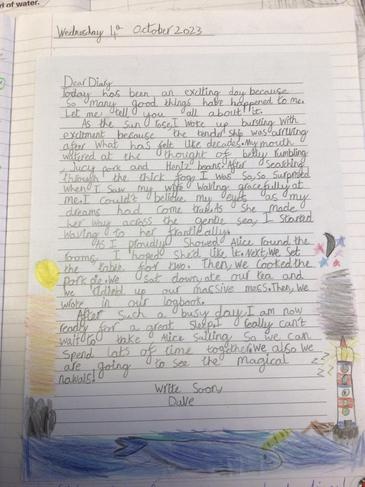 d of water.
Wednesday 4th October 2023
Dear Diary
Today has been an exciting day because
so many good things have happened to me.
Let me tell you all about it.
As the sun rose, I woke up bursting with
excitment because the tender ship was arriving
after what has felt like decades. My mouth
watered at the thought of belly rumbling
Jucy pork and Hentz beans. After Seaching
through the thick fog, I was so, so surprised
when I saw my wife waving gracefully at
me. I couldn't believe my eyes as my
dreams had come true. As she made
her way across the gentle sea, I started
waving to her frantically.
As I proudly showed Alice round the
rooms, I hoped she'd like it. Next, we set
the table for two. Then, we cooked the
pork pie. We sat down, ate our tea and
we tidied up our massive mess. Then, we
wrote in our logbook.
After such a busy day, I am now
ready for a great sleep. I really can't
wait to take Alice sailing so we can
spend lots of time together. We also we
are going to see the magical
narwals!
Write Soon
Dave
zz
zz